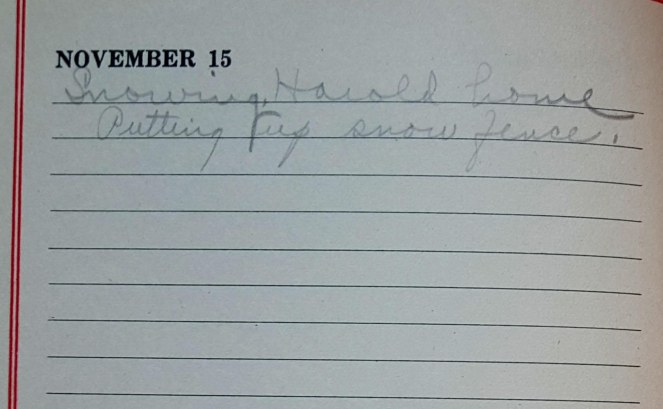 NOVEMBER 15
Snowing, Harold home
Putting up snow fence.